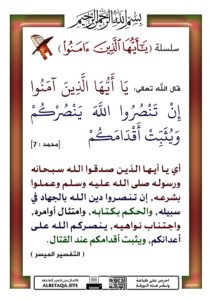 بسم الله الرحمن الرحيم
سلسلة ﴿ يَٰٓأَيُّهَا ٱلَّذِينَ ءَامَنُوٓاْ ﴾
قال الله تعالى: يَا أَيُّهَا الَّذِينَ آمَنُوا
إِنْ تَنْصُرُوا اللَّهَ يَنْصُرْكُمْ
وَيُثَبِّتْ أَقْدَامَكُمْ
[محمد : 7]
أي يا أيها الذين صدقوا الله سبحانه
ورسوله صلى الله عليه وسلم وعملوا
بشرعه، إن تنصروا دين الله بالجهاد في
سبيله، والحكم بكتابه، وامتثال أوامره،
واجتناب نواهيه، ينصركم الله على
أعدائكم، ويثبت أقدامكم عند القتال.
( التفسير الميسر )
احرص على طباعة
ونشر هذه الورقة
ALBETAQA.SITE